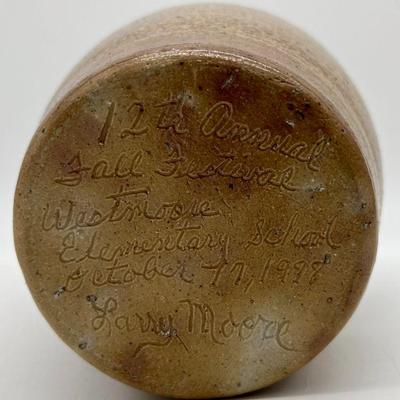 12th Annual
Fall Festival
Westmoore
Elementary School
October 17, 1998
Larry Moore